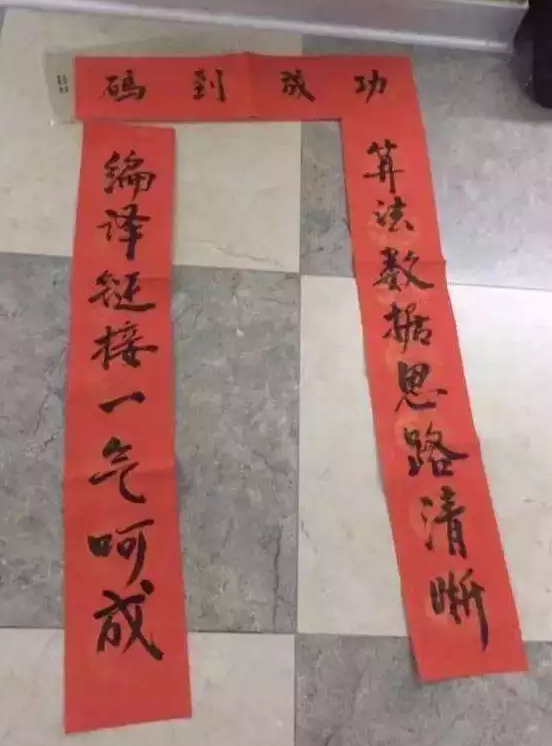 码到成功
算法数据思路清晰
编译链接一气呵成